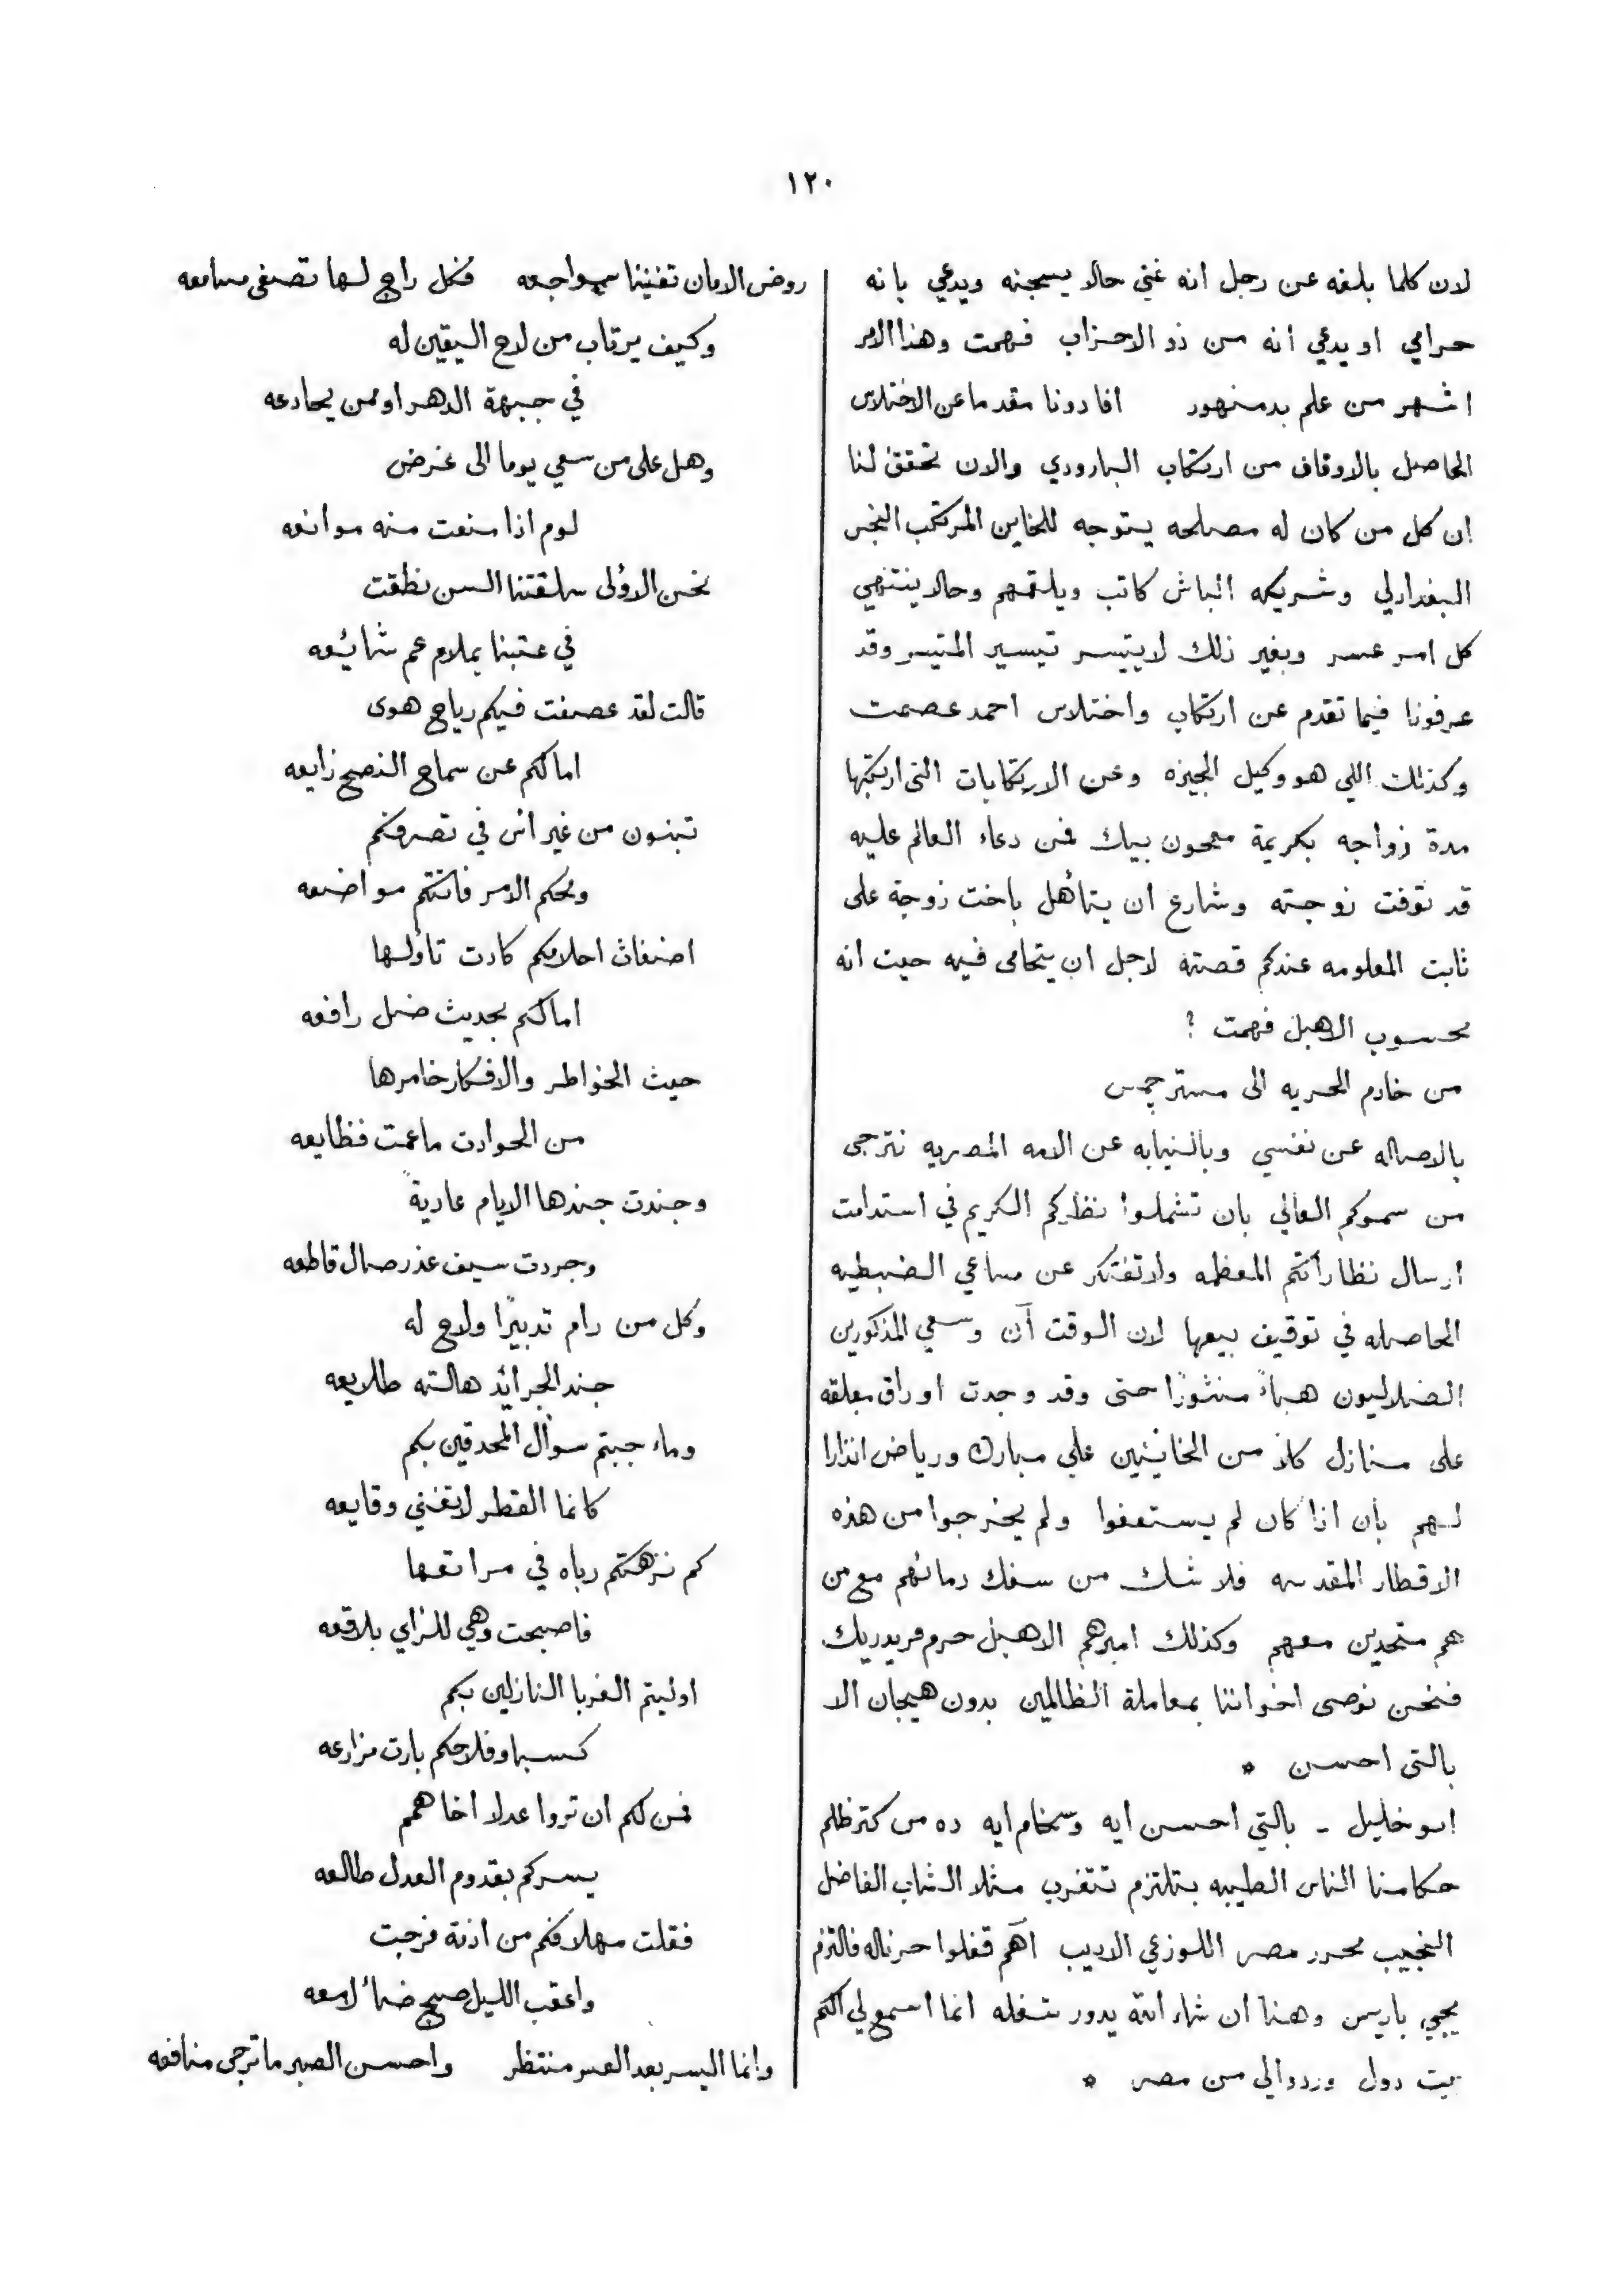 ١٢٠
لان كلما بلغه عن رجل انه غني حالا يسجنه ويدعي بانه
حرامي او يدعي انه من ذو الاحزاب فهمت وهذا الامر
اشهر من علم بدمنهور افادونا مقدما عن الاختلاس
الحاصل بالاوقاف من ارتكاب البارودي والان تحقق لنا
ان كل من كان له مصلحه يتوجه للخاين المرتكب النجس
البغدادلي وشريكه الباش كاتب ويلقمهم وحالا ينتهي
كل امر عسر وبغير ذلك لا يتيسر تيسير المتيسر وقد
عرفونا فيما تقدم عن ارتكاب واختلاس احمد عصمت
وكذلك اللي هو وكيل الجيزه وعن الارتكابات التى ارتكبها
مدة زواجه بكريمة ميحون بيك فمن دعاء العالم عليه
قد توفت زوجته وشارع ان يتأهل باخت زوجة على
ثابت المعلومه عندكم قصته لاجل ان يتحامى فيه حيت انه
محسوب الاهبل فهمت ؟
من خادم الحريه الى مستر جمس
بالاصاله عن نفسي وبالنيابه عن الامه المصريه نترجى
من سموكم العالي بان تشملوا نظركم الكريم في استدامت
ارسال نظاراتكم المعظمه ولا تفتكر عن مساعي الضبطيه
الحاصله في توقيف بيعها لان الوقت آن وسعي المذكورين
الضلاليون هباءً منثورًا حتى وقد وجدت اوراق معلقه
على منازل كلا من الخاينين علي مبارك ورياض انذارا
لهم بأن اذا كان لم يستعفوا ولم يخرجوا من هذه
الاقطار المقدسه فلا شك من سفك دمائهم مع من
هم متحدين معهم وكذلك اميرهم الاهبل حرم فريدريك
فنحن نوصى اخواننا بمعاملة الظالمين بدون هيجان الا
بالتى احسن *
ابو خليل - بالتي احسن ايه وسخام ايه ده من كتر ظلم
حكامنا الناس الطيبه بتلتزم تتغرب مثلا الشاب الفاضل
النجيب محرر مصر اللوزعي الاديب آهم قفلوا حرناله فالتزم
يجيي باريس وهنا ان شاء الله يدور شغله انما اسمع لي اكم
بيت دول وردوالي من مصر *
روض الامان تغنينا سواجعه فكل راج لها تصغى مسامعه
وكيف يرتاب من لاح اليقين له
في جبهة الدهر او ممن يخادعه
وهل على من سعي يوما الى غرض
لوم اذا منعت منه موانعه
نحن الاؤلى سلقتنا السن نطقت
في عتبنا بملام عم شائعه
قالت لقد عصفت فيكم رياح هوى
امالكم عن سماح النصح زايعه
تبنون من غير اس في تصرفكم
ومحكم الامر فاتتكم مواضعه
اضغاث احلامكم كادت تأولها
امالكم بحديث ضل رافعه
حيث الخواطر والافكار خامرها
من الحوادت ماعمت فظايعه
وجندت جندها الايام عاديةً
وجردت سيف عذر صال قاطعه
وكل من رام تدبيرًا ولاح له
جند الجرائد هالته طلايعه
وما جبتم سوأل المحدقين بكم
كانما القطر لا تغني وقايعه
كم نزهتكم رباه في مراتعها
فاصبحت وهي للراي بلاقعه
اوليتم الغربا النازلين بكم
كسبا وفلاحكم بارت مزارعه
فمن لكم ان تروا عدلا اخا همم
يسركم بقدوم العدل طالعه
فقلت مهلا فكم من ازنة فرجت
واعقب الليل صبح ضاء لامعه
وانما اليسر بعد العسر منتظر واحسن الصبر ما ترجى منافعه